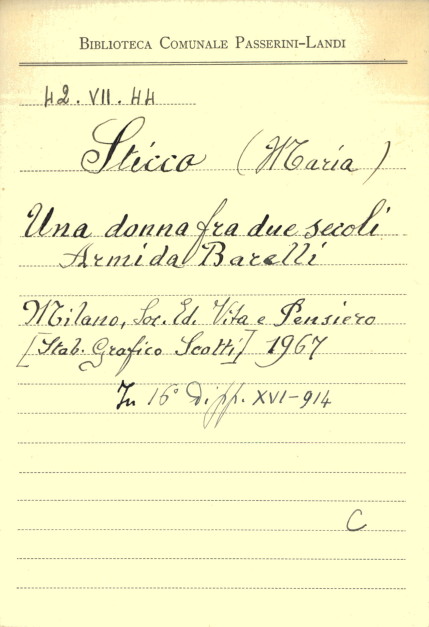 BIBLIOTECA COMUNALE PASSERINI-LANDI
42. VII. 44
Sticco (Maria)
Una donna fra due secoli
Armida Barelli
Milano, Soc. Ed. Vita e Pensiero
[Stab. Grafico Scotti] 1967
In 16° di pp. XVI-914
C